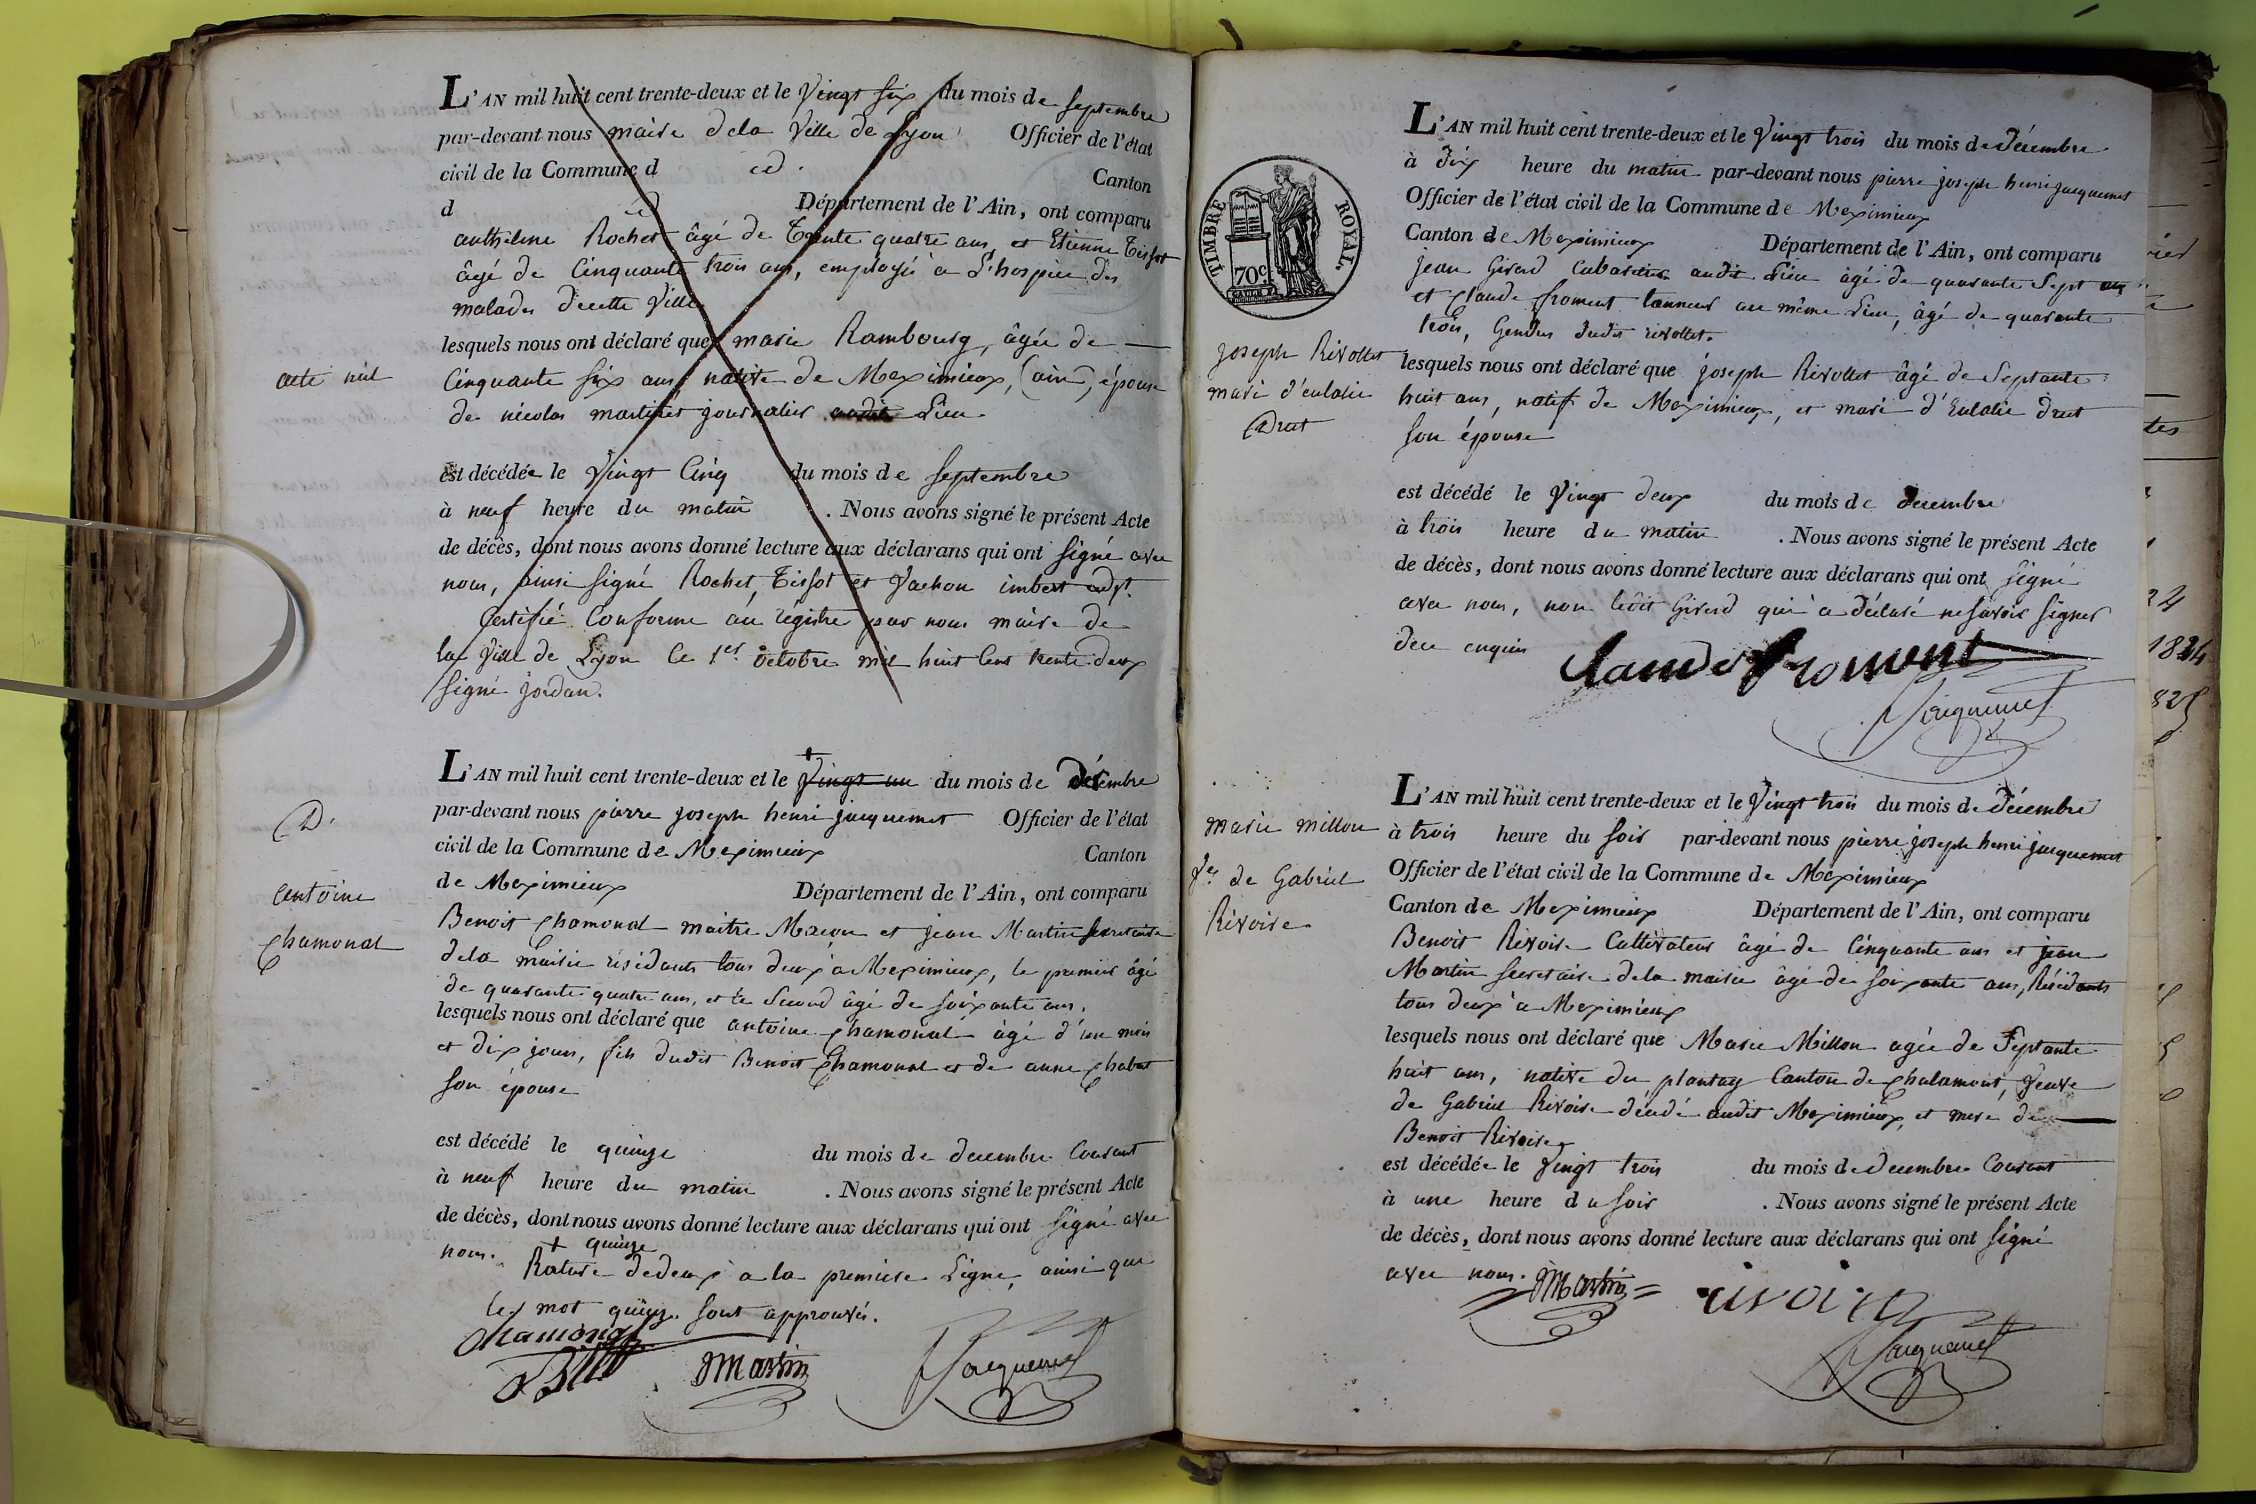 L'AN mil huit cent trente-deux et le Vingt six du mois de septembre
par-devant nous maire dela Ville de Lyon Officier de l'état
civil de la Commune d id. Canton
d id Département de l'Ain, ont comparu
anthelme Rochet âgé de Trente quatre ans, et Etienne Tissot
âgé de Cinquante trois ans, employés à L'hospice des
malades decette Ville
lesquels nous ont déclaré que marie Rambourg, âgée de
acte nul
Cinquante six ans, native de Meximieux, (ain), épouse
de nicolas journalier audit Lieu.
est décédée le Vingt Cinq du mois de septembre
à neuf heure du matin . Nous avons signé le présent Acte
de décès, dont nous avons donné lecture aux déclarans qui ont signé avec
nous, ainsi signé Rochet, Tissot et Vachon imbert adjt.
Certifié Conforme au régistre par nous maire de
la Ville de Lyon Ce 1er. octobre mil huit Cent trente deux
signé jordan.
L'AN mil huit cent trente-deux et le + Vingt un du mois de décembre
par-devant nous pierre joseph henri jacquemet Officier de l'état
D.
civil de la Commune de Meximieux Canton
de Meximieux Département de l'Ain, ont comparu
antoine
Chamonal
Benoit Chamonal maitre Macon et jean Martin secretaire
dela Mairie résidants tous deux à Meximieux, le premier âgé
de quarante quatre ans, et le Second âgé de soixante ans.
lesquels nous ont déclaré que antoine Chamonal âgé d'un mois
et dix jours, fils dudit Benoit Chamonal et de anne Chabat
son épouse
est décédé le quinze du mois de decembre Courant
à neuf heure du matin . Nous avons signé le présent Acte
de décès, dont nous avons donné lecture aux déclarans qui ont signé avec
nous. + quinze
Rature dedeux à la premiere Ligne, ainsi que
le mot quinze sont approuvés.
chamonal
JMartin
Jacquemet
L'AN mil huit cent trente-deux et le Vingt trois du mois de Décembre
à dix heure du matin par-devant nous pierre joseph henri jacquemet
Officier de l'état civil de la Commune de Meximieux
Canton de Meximieux Département de l'Ain, ont comparu
TIMBRE ROYAL.
70c.
jean Girard Cabaretier audit Lieu âgé de quarante Sept ans
et Claude froment tanneur au même Lieu, âgé de quarante
trois, Gendres dudit rivollet.
joseph Rivollet
mari d'eulalie
Drut
lesquels nous ont déclaré que joseph Rivollet âgé de Septante
huit ans, natif de Meximieux, et mari d'Eulalie Drut
son épouse
est décédé le Vingt deux du mois de decembre
à trois heure du matin . Nous avons signé le présent Acte
de décès, dont nous avons donné lecture aux déclarans qui ont signé
avec nous, non ledit Girard qui a déclaré nesavoir signer
dece enquis
Claude froment
Jacquemet
L'AN mil huit cent trente-deux et le Vingt trois du mois de Décembre
à trois heure du soir par-devant nous pierre joseph henri jacquemet
marie millon
Ve. de Gabriel
Rivoire
Officier de l'état civil de la Commune de Meximieux
Canton de Meximieux Département de l'Ain, ont comparu
Benoit Rivoire Cultivateur âgé de Cinquante ans et jean
Martin secretaire dela mairie âgé de soixante ans, Résidants
tous deux à Meximieux
lesquels nous ont déclaré que Marie Millon agée de Septante
huit ans, native du plantay Canton de Chalamont, Veuve
de Gabriel Rivoire décédé audit Meximieux, et mere de
Benoit Rivoire
est décédée le Vingt trois du mois de decembre Courant
à une heure du soir . Nous avons signé le présent Acte
de décès, dont nous avons donné lecture aux déclarans qui ont signé
avec nous. JMartin rivoire
Jacquemet